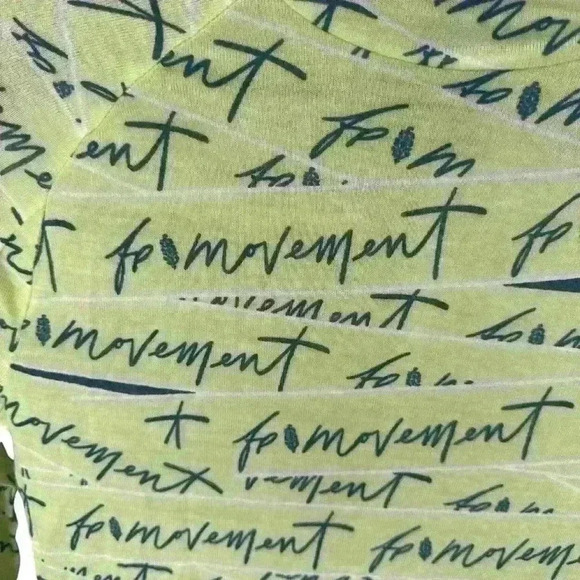 movement
ent
fp
ent fp m
fp
t fp movement fp
movement
movement fp
t fp movement
movement
movement fp
t fp movement fp movement
movement